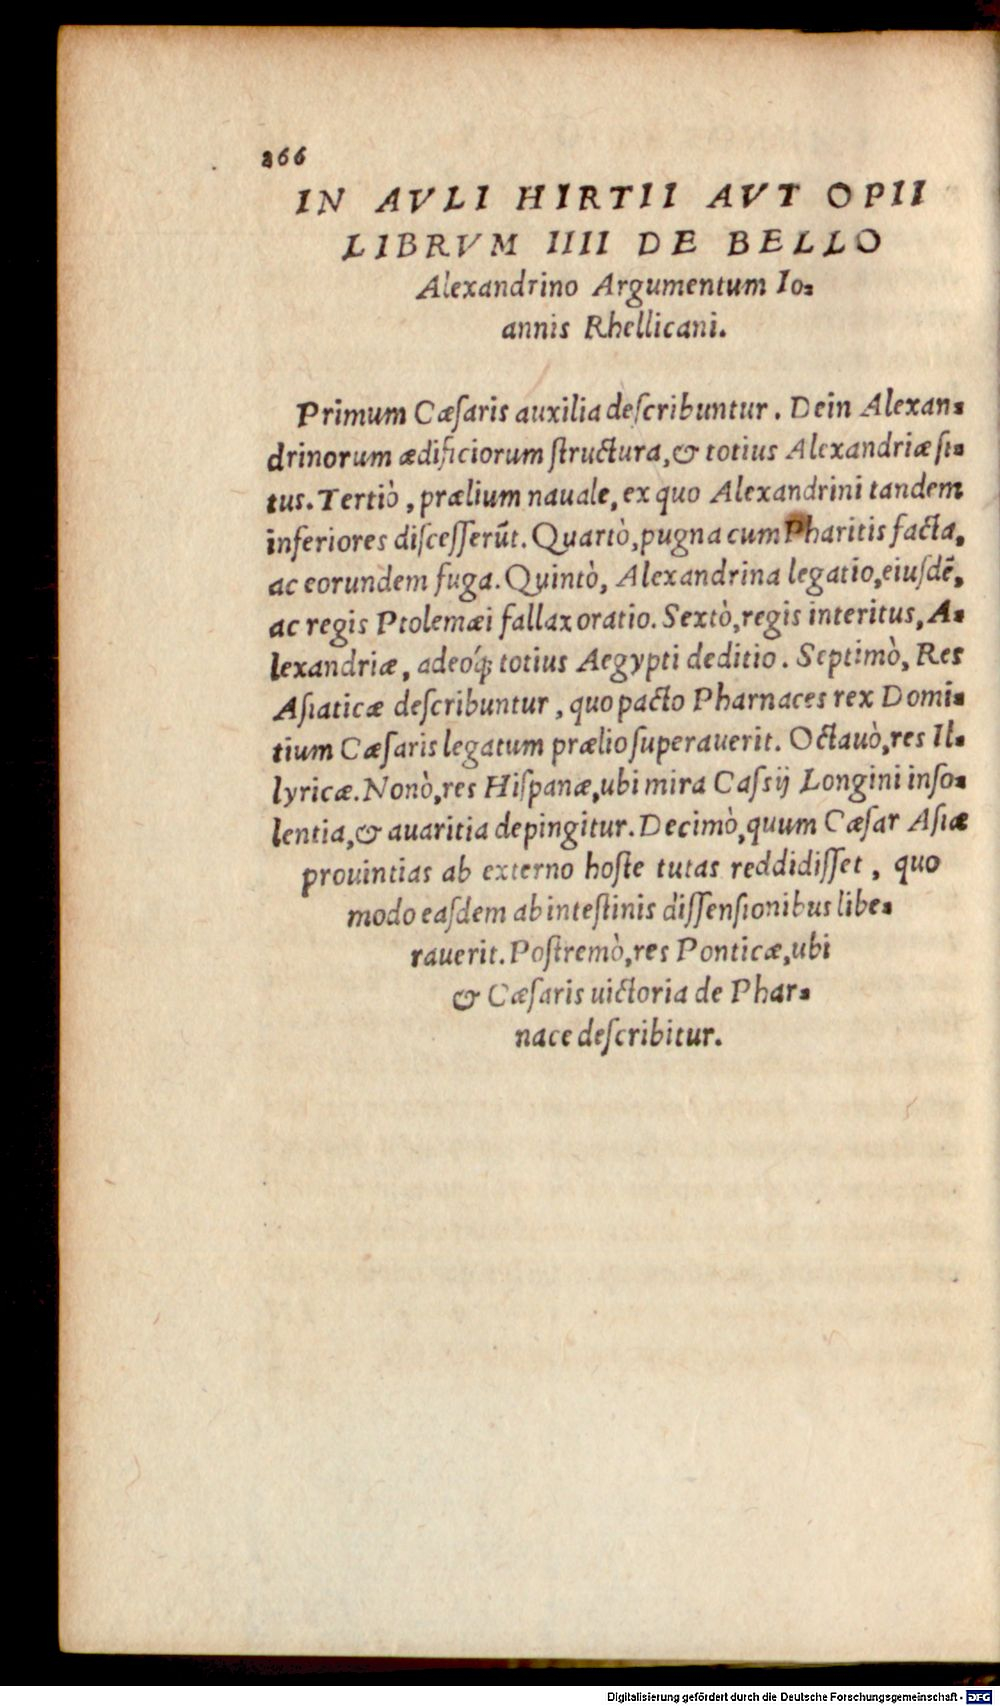 266
IN AVLI HIRTII AVT OPII
LIBRVM IIII DE BELLO
Alexandrino Argumentum Io-
annis Rhellicani.
Primum Cæſaris auxilia deſcribuntur. Dein Alexan-
drinorum ædificiorum ſtructura, & totius Alexandriæ ſi-
tus. Tertiò, prælium nauale, ex quo Alexandrini tandem
inferiores diſceſſerūt. Quartò, pugna cum Pharitis facta,
ac eorundem fuga. Quintò, Alexandrina legatio, eiuſdē,
ac regis Ptolemæi fallax oratio. Sextò, regis interitus, A-
lexandriæ, adeóq́; totius Aegypti deditio. Septimò, Res
Aſiaticæ deſcribuntur, quo pacto Pharnaces rex Domi-
tium Cæſaris legatum prælio ſuperauerit. Octauò, res Il-
lyricæ. Nonò, res Hiſpanæ, ubi mira Caſsij Longini inſo-
lentia, & auaritia depingitur. Decimò, quum Cæſar Aſiæ
prouintias ab externo hoſte tutas reddidiſſet, quo
modo eaſdem ab inteſtinis diſſenſionibus libe-
rauerit. Poſtremò, res Ponticæ, ubi
& Cæſaris uictoria de Phar-
nace deſcribitur.
Digitalisierung gefördert durch die Deutsche Forschungsgemeinschaft - DFG